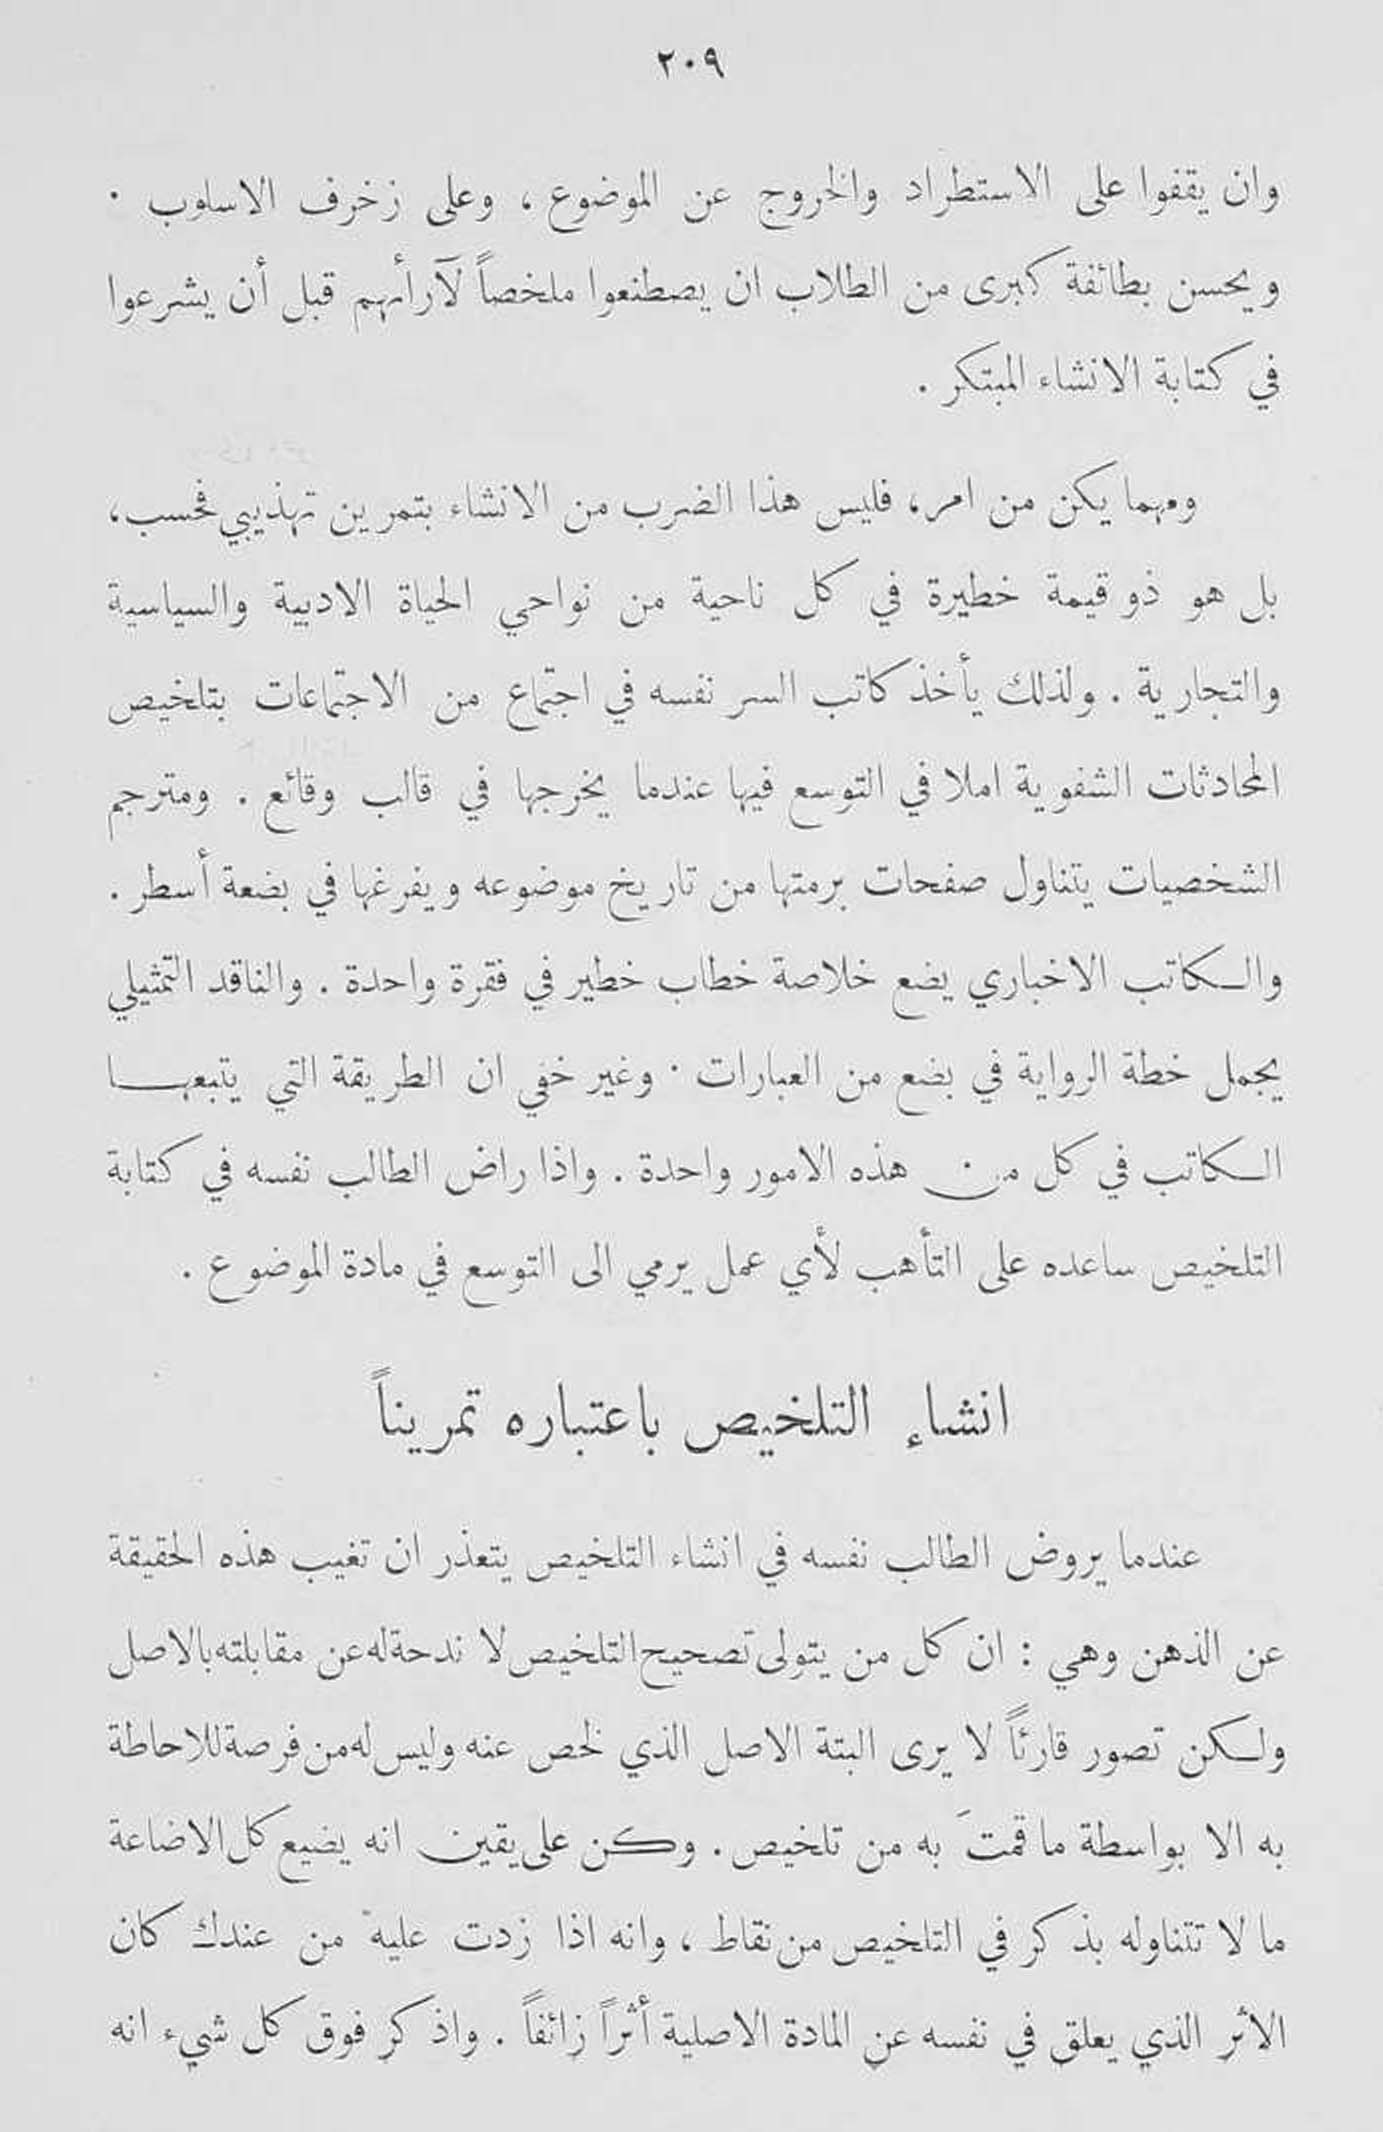 ٢٠٩
وان يقفوا على الاستطراد والخروج عن الموضوع، وعلى زخرف الاسلوب .
ويحسن بطائفة كبرى من الطلاب ان يصطنعوا ملخصاً لآرأئهم قبل أن يشرعوا
في كتابة الانشاء المبتكر .
ومهما يكن من امر، فليس هذا الضرب من الانشاء بتمرين تهذيبي فحسب،
بل هو ذو قيمة خطيرة في كل ناحية من نواحي الحياة الادبية والسياسية
والتجارية . ولذلك يأخذ كاتب السر نفسه في اجتماع من الاجتماعات بتلخيص
المحادثات الشفوية املا في التوسع فيها عندما يخرجها في قالب وقائع . ومترجم
الشخصيات يتناول صفحات برمتها من تاريخ موضوعه ويفرغها في بضعة أسطر .
والكاتب الاخباري يضع خلاصة خطاب خطير في فقرة واحدة . والناقد التمثيلي
يجمل خطة الرواية في بضع من العبارات . وغير خفي ان الطريقة التي يتبعها
الكاتب في كل من هذه الامور واحدة . واذا راض الطالب نفسه في كتابة
التلخيص ساعده على التأهب لأي عمل يرمي الى التوسع في مادة الموضوع .
انشاء التلخيص باعتباره تمريناً
عندما يروض الطالب نفسه في انشاء التلخيص يتعذر ان تغيب هذه الحقيقة
عن الذهن وهي : ان كل من يتولى تصحيح التلخيص لا ندحة له عن مقابلته بالاصل
ولكن تصور قارئاً لا يرى البتة الاصل الذي لخص عنه وليس له من فرصة للاحاطة
به الا بواسطة ما قمتَ به من تلخيص . وكن على يقين انه يضيع كل الاضاعة
ما لا تتناوله بذكر في التلخيص من نقاط ، وانه اذا زدت عليه من عندك كان
الاثر الذي يعلق في نفسه عن المادة الاصلية أثراً زائفاً . واذكر فوق كل شيء انه